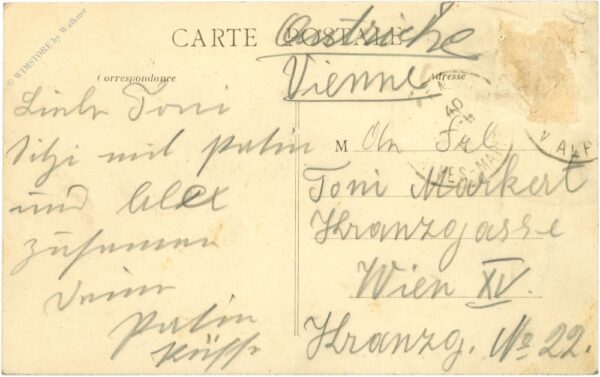 © WIMSTORE by Walkner
CARTE POSTALE
Autriche
Vienne
Correspondance
Adresse
Liebe Toni
Sitze mit Patin
und Alex
zusammen
Deine
Patin
Küsse
M An Frl
Toni Markert
Kranzgasse
Wien XV.
Kranzg. No 22.
40